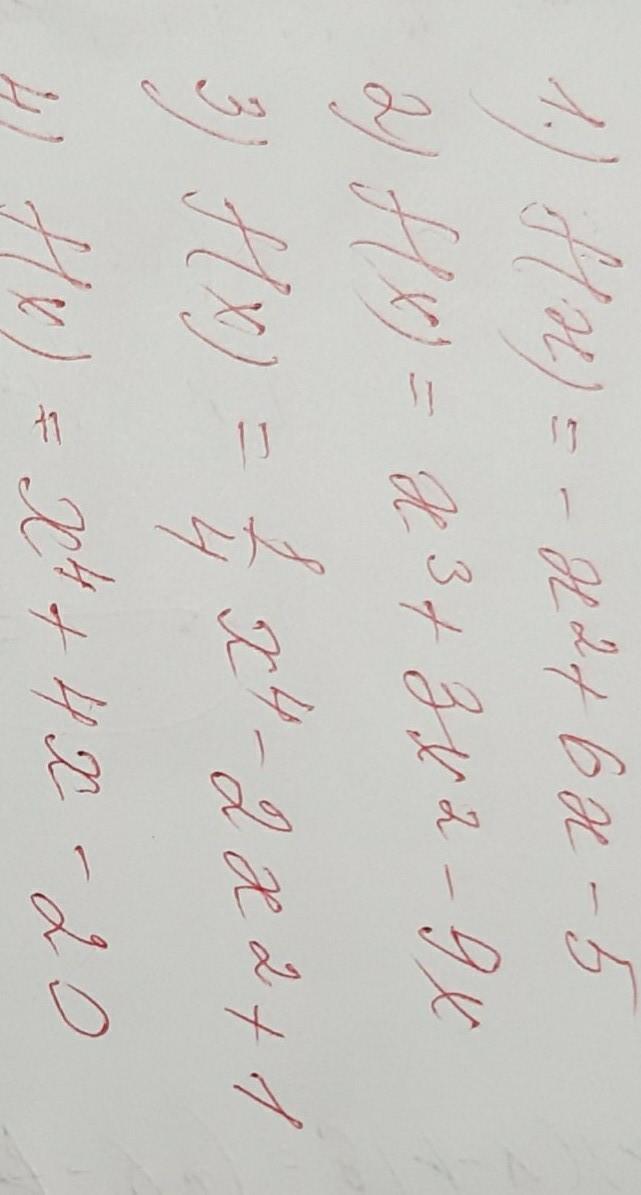 1.) f(x) = - x² + 6x - 5
2) f(x) = x³ + 3x² - 9x
3) f(x) = 1/4 x⁴ - 2x² + 1
4) f(x) = x⁴ + 4x - 20